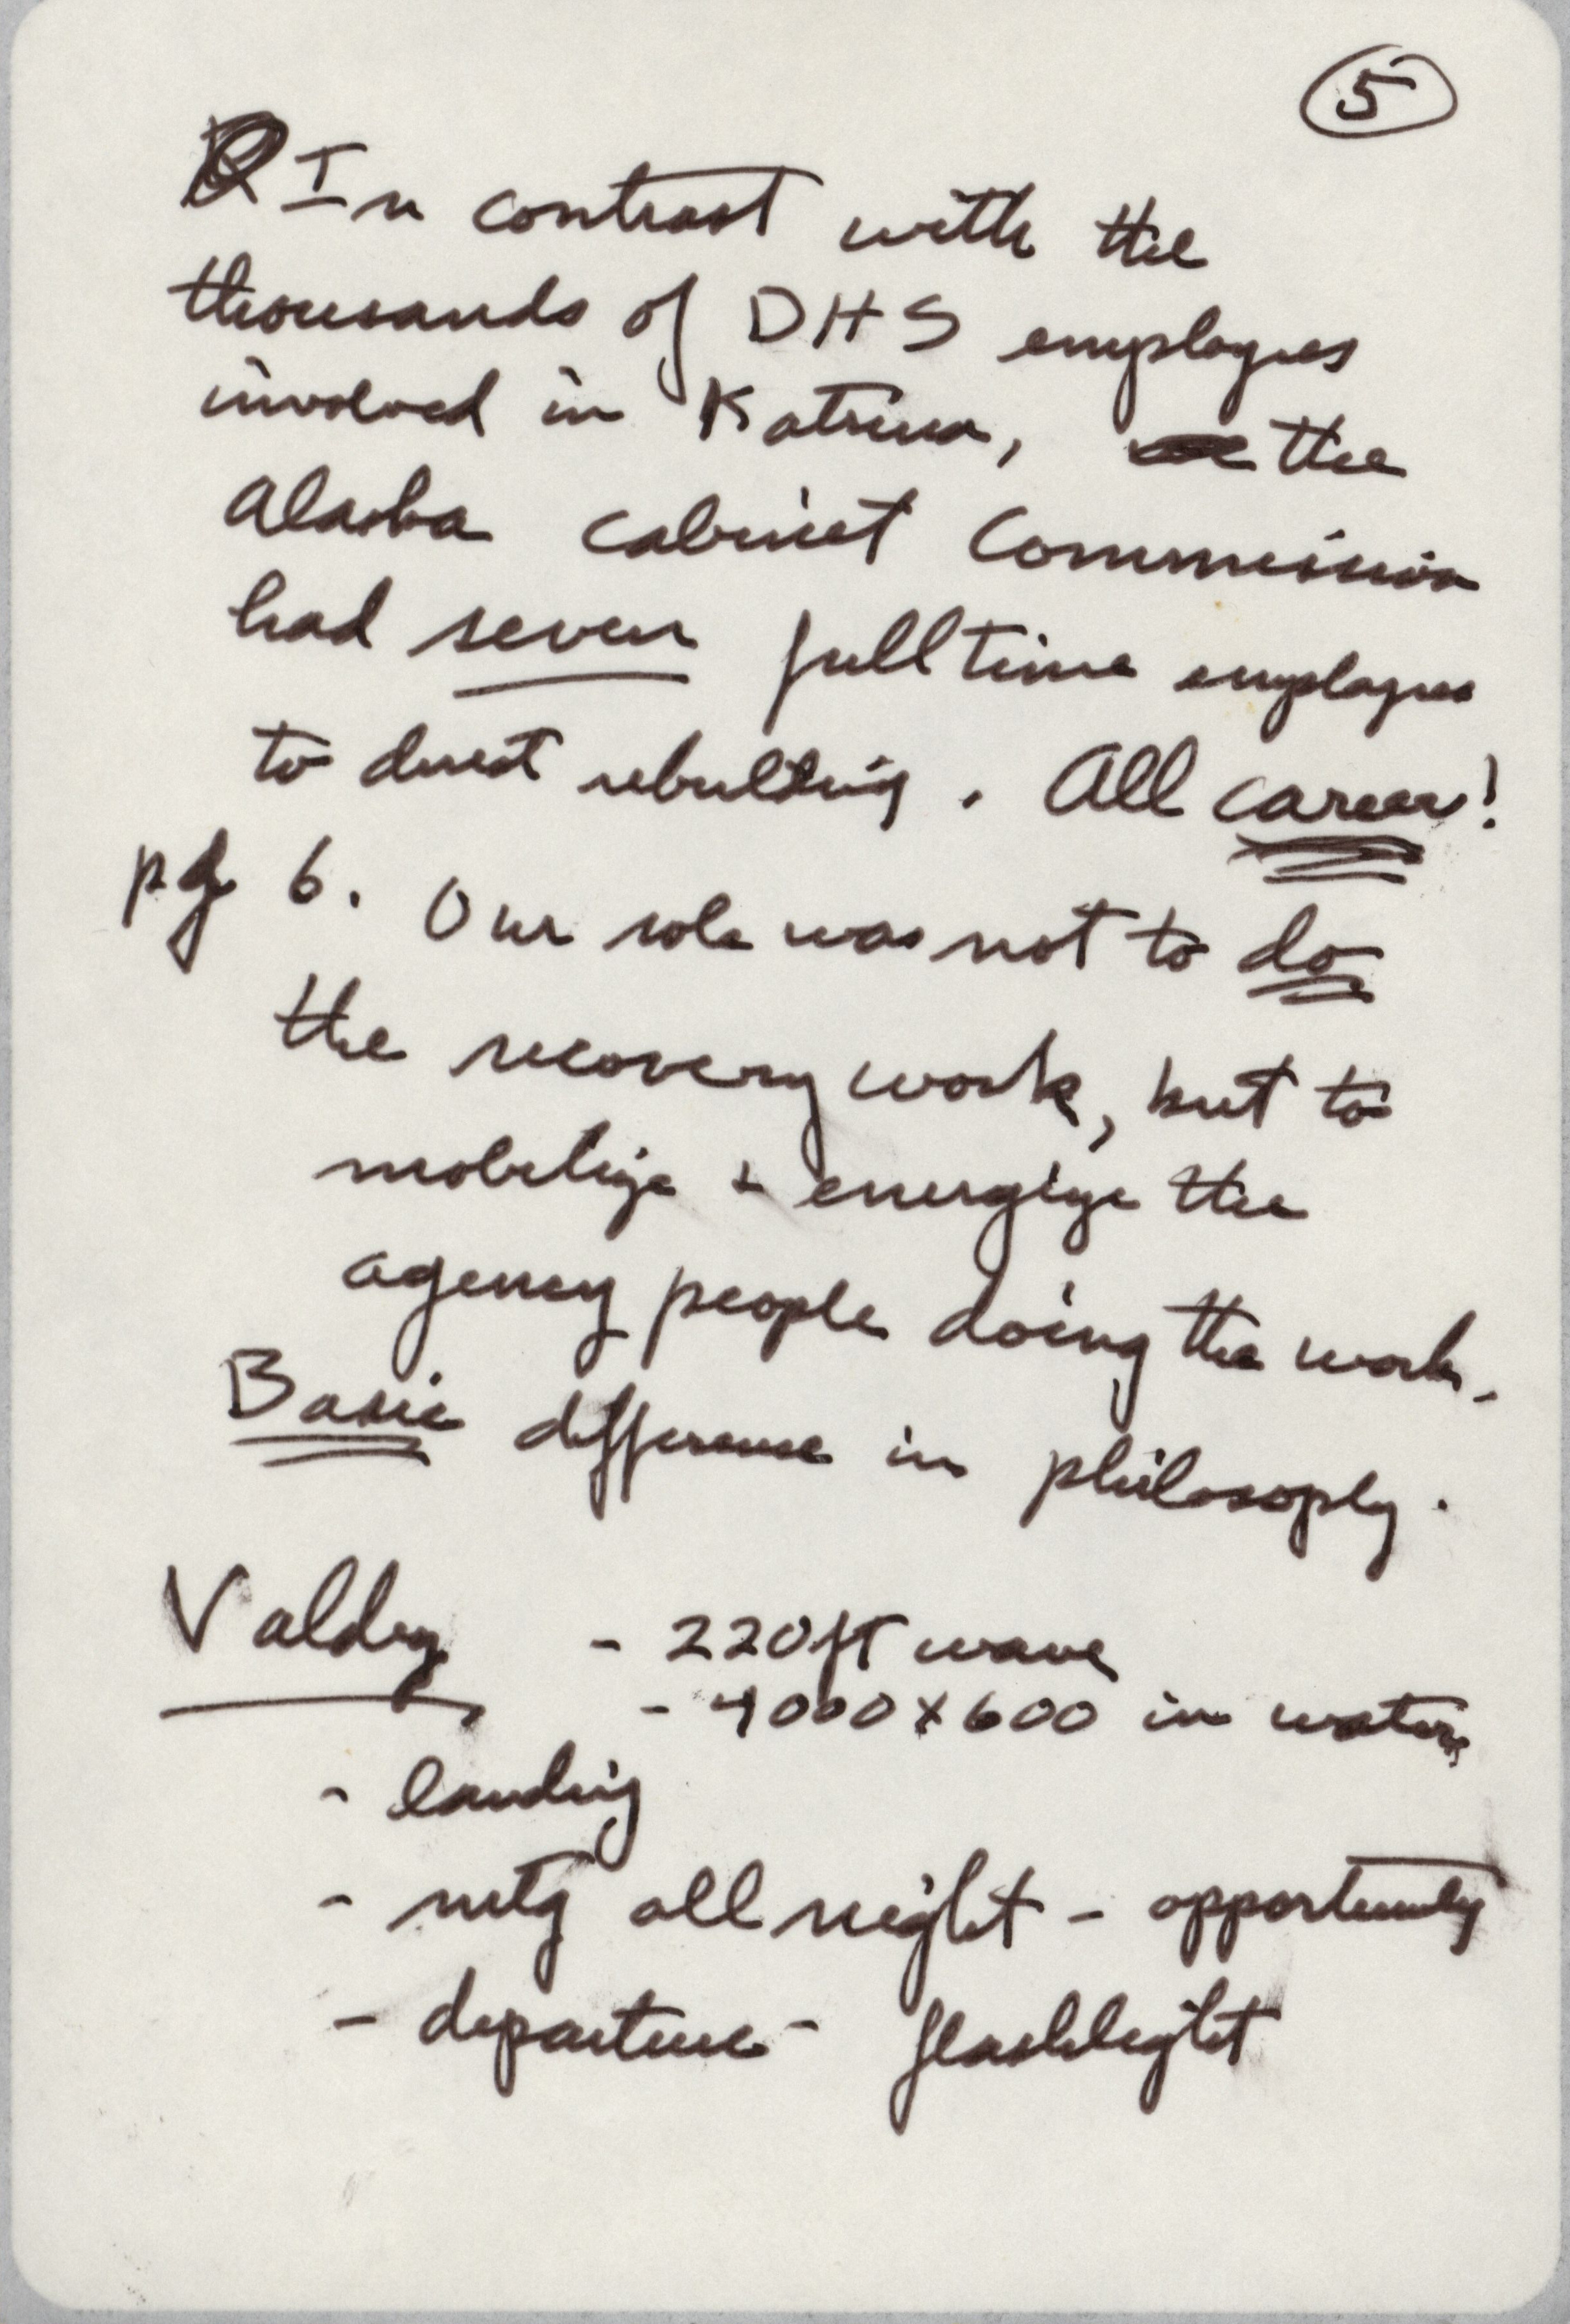 5
In contrast with the
thousands of DHS employees
involved in Katrina, the
Alaska cabinet Commission
had seven full time employees
to direct rebuilding. All career!
pg 6. Our role was not to do
the recovery work, but to
mobilize + energize the
agency people doing the work.
Basic difference in philosophy.
Valdez - 220 ft wave
- 4000 x 600 in water
- landing
- mtg all night - opportunity
- departure - flashlight